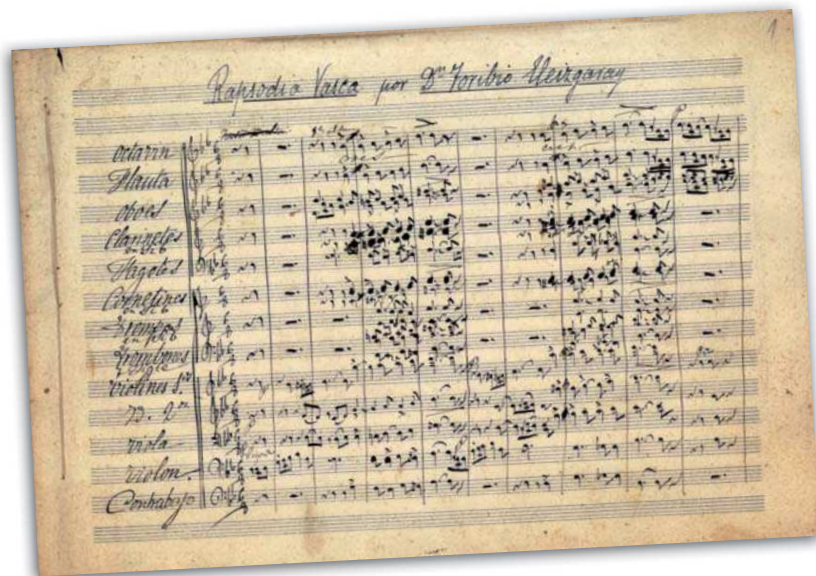 1
Rapsodia Vasca por Dn Toribio Eleizgaray
octavin
Flauta
oboes
Clarinetes
Fagotes
Cornetines
Trompas
Trombones
violines 1os
viola
violon
Contrabajo